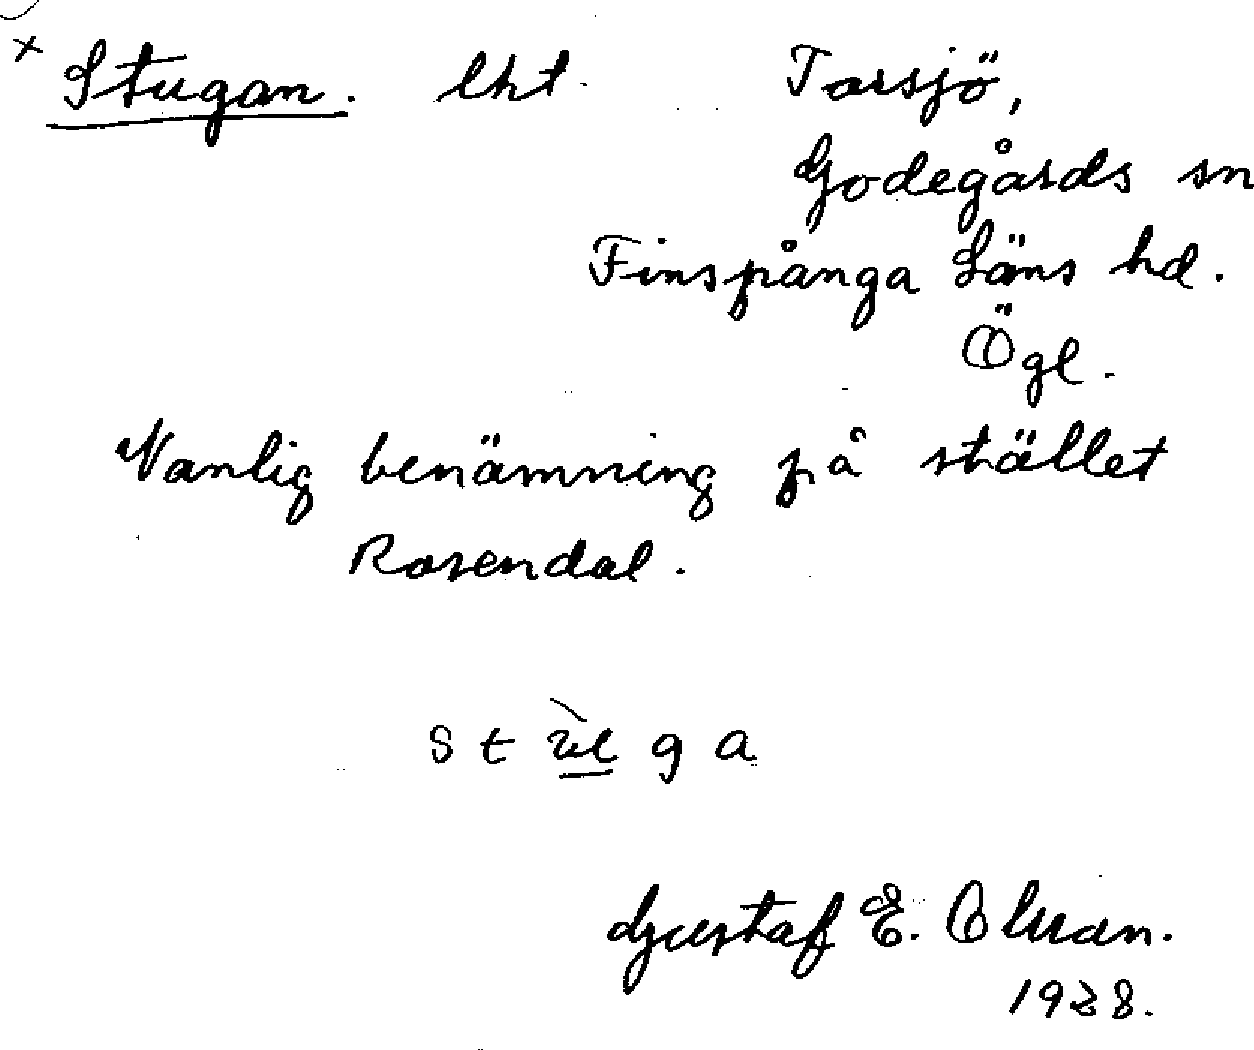 × Stugan. lht. Torsjö,
Godegårds sn
Finspånga Läns hd.
Ögl.
Vanlig benämning på stället
Rosendal.
stùga
Gustaf E.
1928.